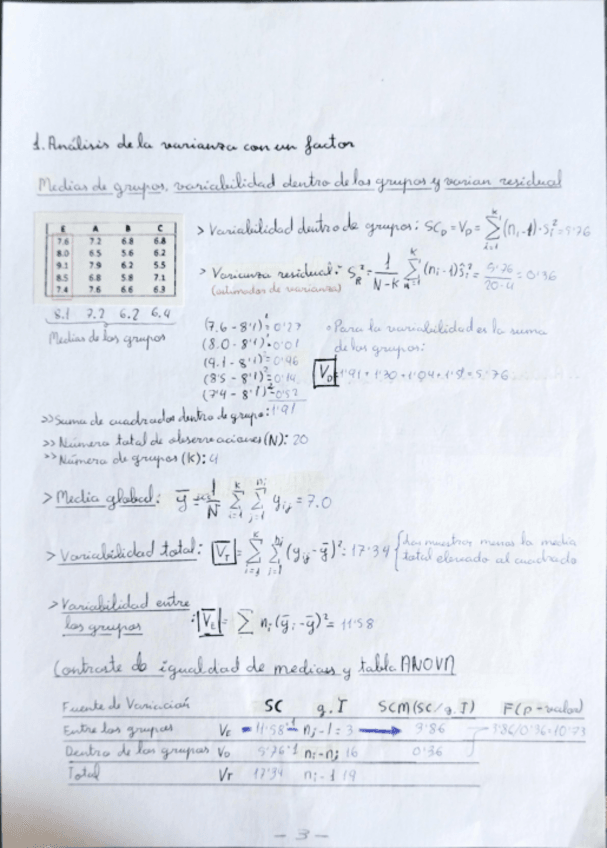 1. Análisis de la varianza con un factor
Medias de grupos, variabilidad dentro de los grupos y varian residual
E A B C
7.6 7.2 6.8 6.8
8.0 6.5 5.6 6.2
9.1 7.9 6.2 5.5
8.5 6.8 5.8 7.1
7.4 7.6 6.6 6.3
8.1 7.2 6.2 6.4
Medias de los grupos
> Variabilidad dentro de grupos: SC_D = V_D = Σ(n_i-1)·S_i² = 5'76
> Varianza residual: S_R² = 1/(N-K) Σ(n_i-1)ŝ_i² = 5'76/(20-4) = 0'36
(estimador de varianza)
(7.6-8'1)²=0'27
(8.0-8'1)²=0'01
(9.1-8'1)²=0'96
(8.5-8'1)²=0'14
(7'4-8'1)²=0'52
• Para la variabilidad es la suma
de los grupos:
V_D = 1'91 + 1'30 + 1'04 + 1'5 = 5'76
>> Suma de cuadrados dentro de grupo: 1'91
>> Número total de observaciones (N): 20
>> Número de grupos (K): 4
> Media global: ȳ = 1/N Σ Σ y_ij = 7.0
> Variabilidad total: V_T = Σ Σ (y_ij-ȳ)² = 17'34 { Las muestras menos la media
total elevado al cuadrado
> Variabilidad entre
los grupos : V_E = Σ n_i(ȳ_i-ȳ)² = 11'58
Contraste de igualdad de medias y tabla ANOVA
Fuente de Variación SC g.I SCM (SC/g.I) F (p-valor)
Entre los grupos V_E 11'58 n_i-1 = 3 3'86 3'86/0'36=10'73
Dentro de los grupos V_D 5'76 n_i-n_j 16 0'36
Total V_T 17'34 n_i-1 19
- 3 -